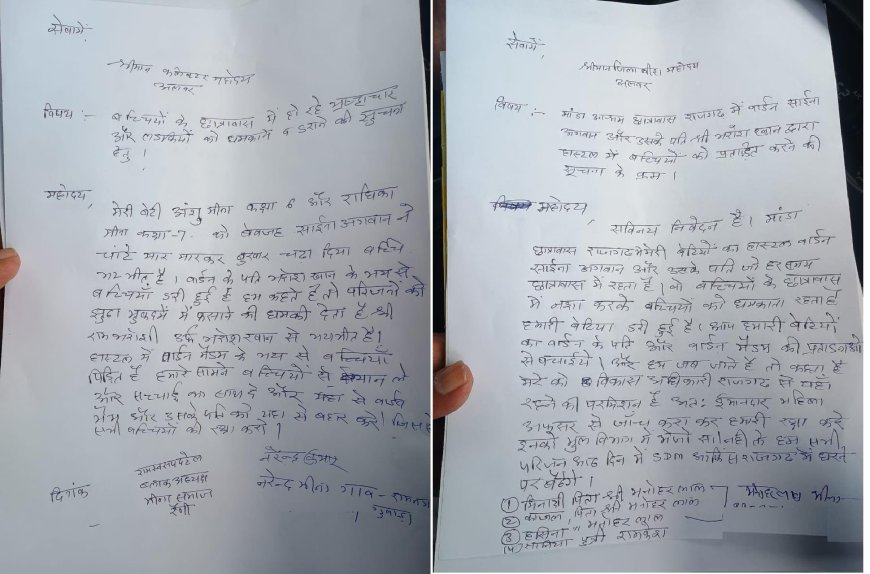 सेवामें,
श्रीमान कलेक्टर महोदय
अलवर
विषय :- बच्चियों के छात्रावास में हो रहे भ्रष्टाचार
और लडकियों को धमकाने व डराने की सुचना
हेतु।
महोदय,
मेरी बेटी अंशु मीना कक्षा 6 और राधिका
मीना कक्षा-7 को बेवजह साईना अगवान ने
चांटे मार मारकर बुखार चढा दिया बच्चि
भयभीत है। वार्डन के पति खान के भय से
बच्चियाँ डरी हुई है हम कहते है तो परिजनों को
झुठा मुकदमें में फसाने की धमकी देता है श्री
उर्फ खान से भयभीत है।
हास्टल में वार्डन मैडम के भय से बच्चियाँ
पिडित है हमारे सामने बच्चियों से ब्यान ले
और सच्चाई का साथ दे और यहां से वार्डन
मैम और उसके पति को यहा से बहार करे। जिससे
सभी बच्चियों की रक्षा करो।
दिनांक
रामस्वरूप पटेल
ब्लाक अध्यक्ष
मीणा समाज
रैणी
नरेन्द्र कुमार
नरेन्द्र मीना गाव -
सेवामें,
श्रीमान जिला महोदय
अलवर
विषय :- मांडा आश्रम छात्रावास राजगढ में वार्डन साईना
अगवान और उसके पति श्री खान द्वारा
हास्टल में बच्चियों को प्रताड़ित करने की
सूचना के क्रम।
महोदय,
सविनय निवेदन है। मांडा
छात्रावास राजगढ में मेरी बेटियों का हास्टल वार्डन
साईना अगवान और उसके पति जो हर समय
छात्रावास में रहता है। वो बच्चियों के छात्रावास
में नशा करके बच्चियों को धमकाता रहता है
हमारी बेटिया डरी हुई है। आप हमारी बेटियों
का वार्डन के पति और वार्डन मैडम की प्रताडनाओ
से बचाईये। और हम जब जाते है तो कहता है
मेरे को विकास अधिकारी राजगढ से यहां
रहने की परमिशन है अतः ईमानदार महिला
अफसर से जाँच करा कर हमारी रक्षा करे
इनको मुल विभाग में भेजो सा। नही तो हम सभी
परिजन आठ दिन में SDM आफिस राजगढ में धरने
पर बैठेगे।
① पिता श्री मनोहर लाल
② काजल, पिता श्री मनोहर लाल
③ " मनोहर लाल
(4) पुत्री रामकेश
मनोहर लाल मीना